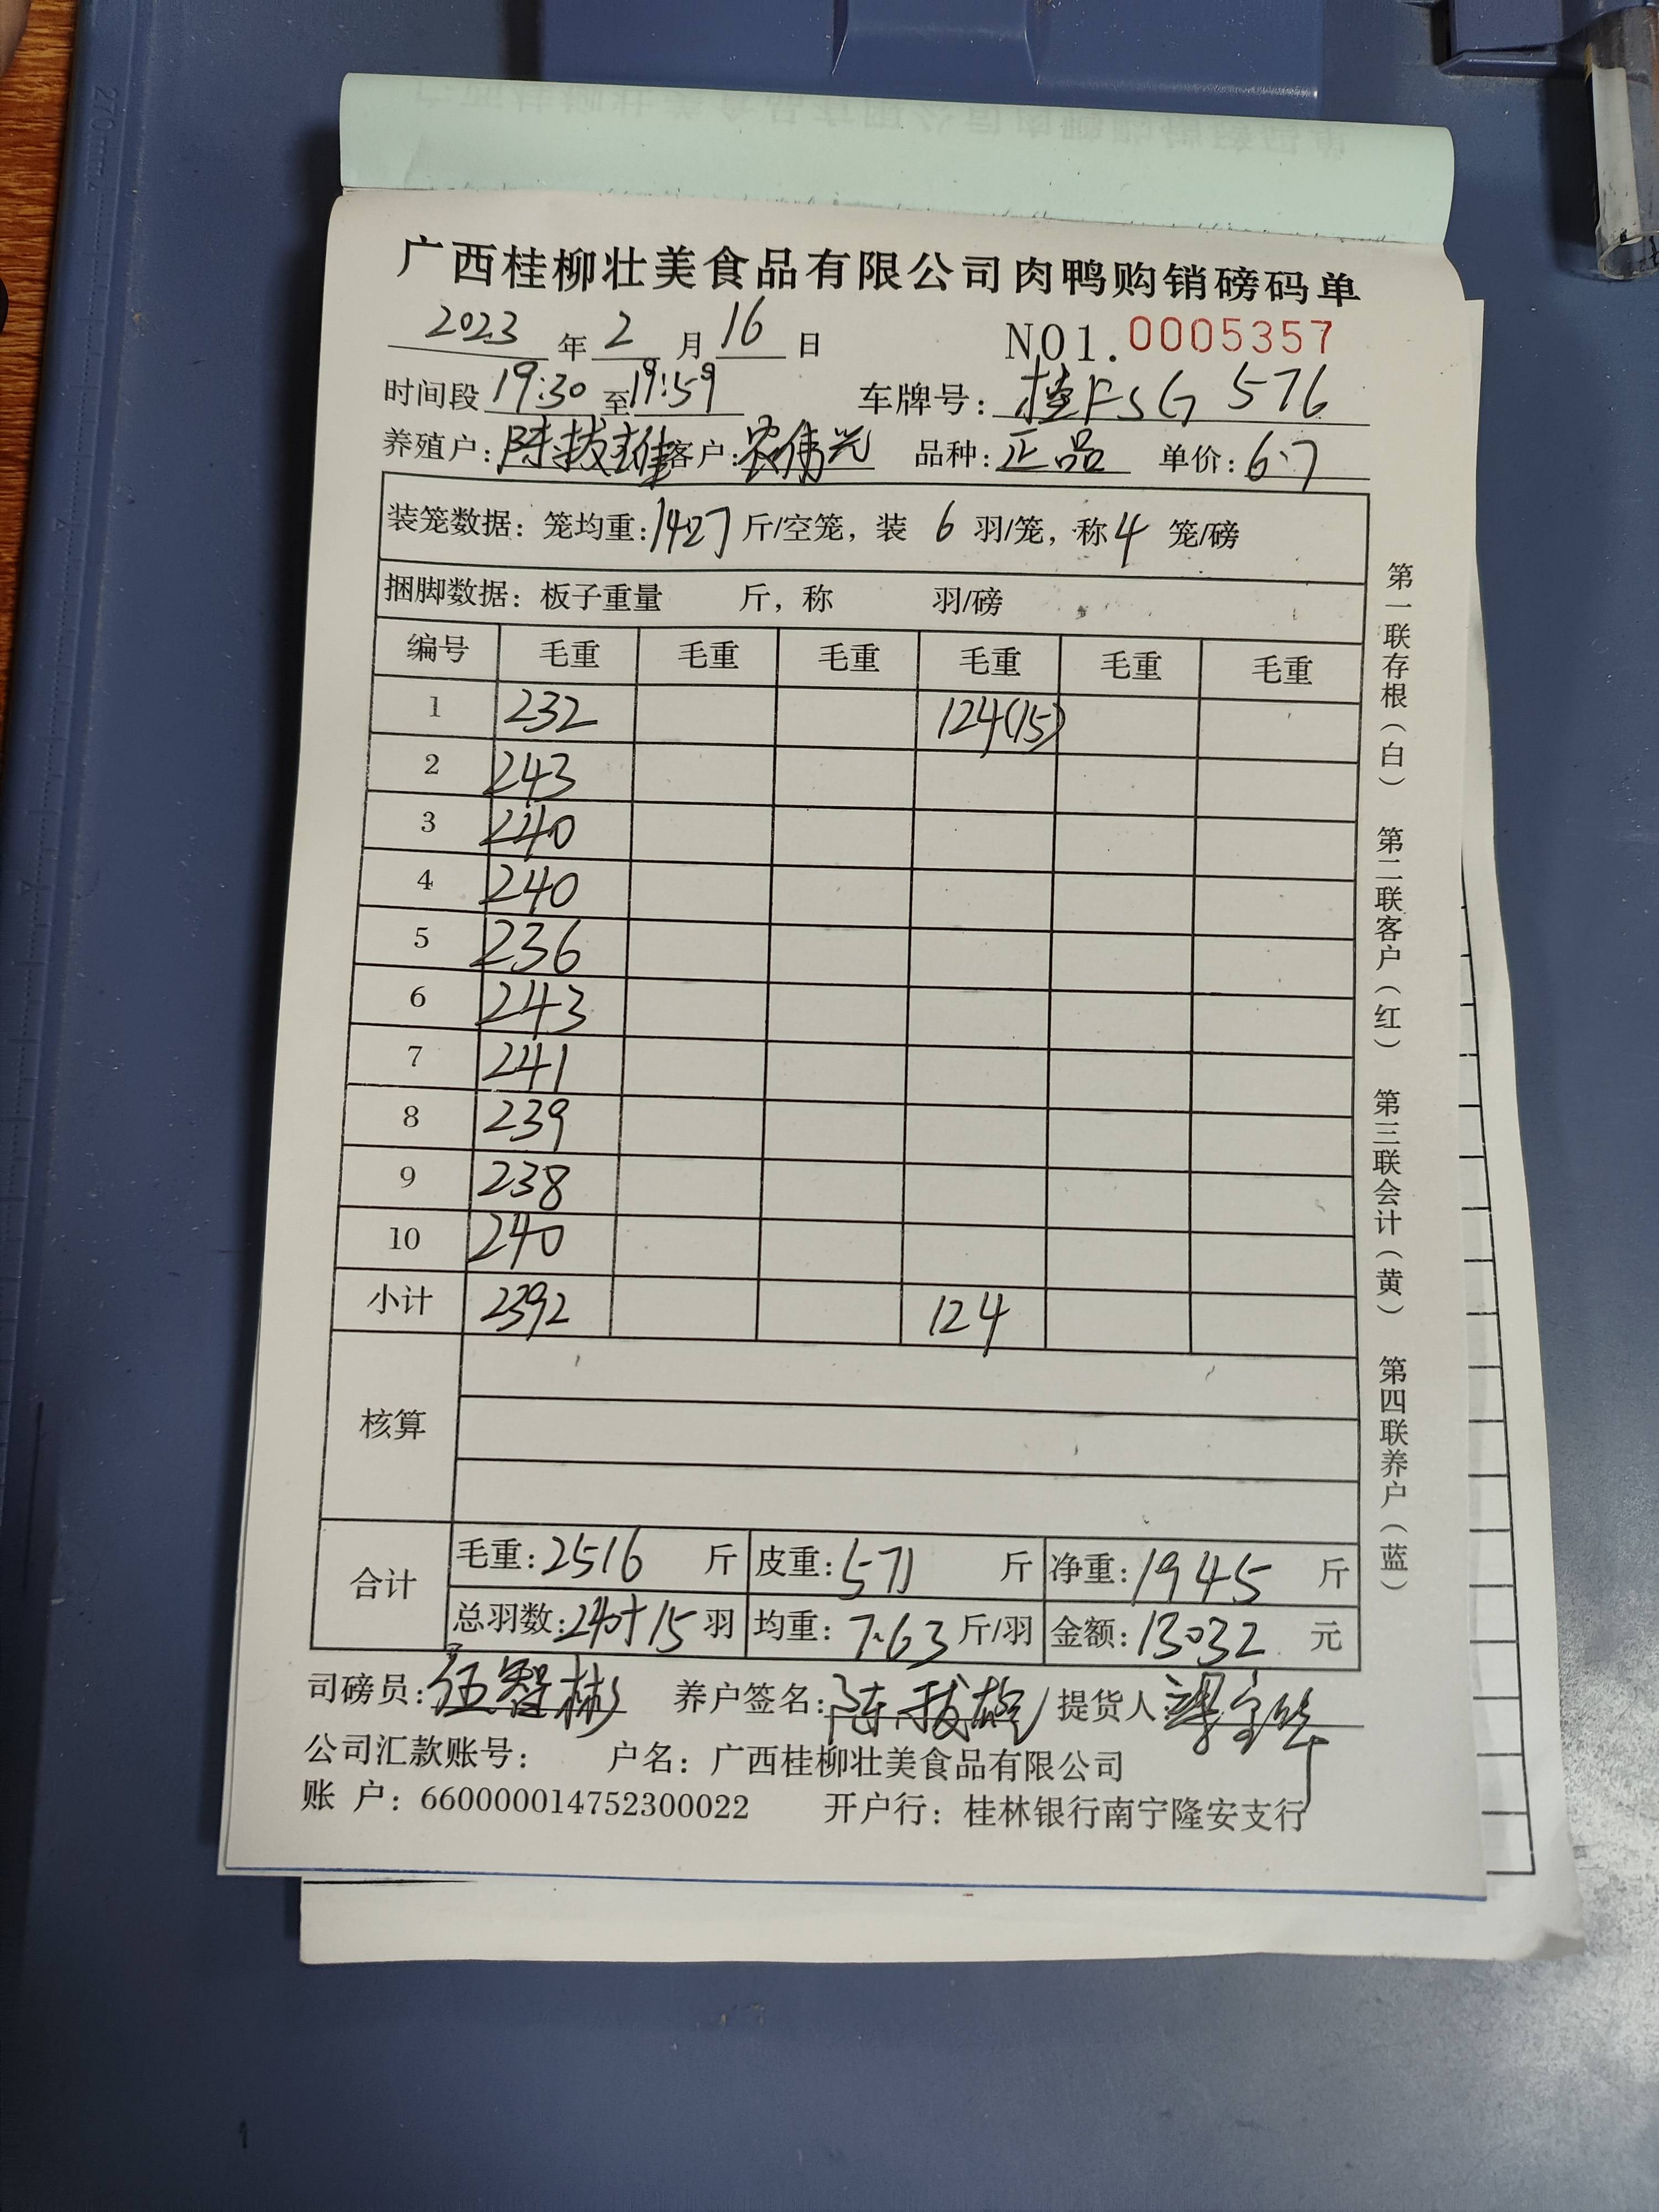 广西桂柳壮美食品有限公司肉鸭购销磅码单
2023 年 2 月 16 日 NO1. 0005357
时间段 19:30 至 19:59 车牌号: 桂FSG 576
养殖户: 陈拔雄 客户: 农伟兴 品种: 正品 单价: 6.7
装笼数据: 笼均重: 14.27 斤/空笼, 装 6 羽/笼, 称 4 笼/磅
捆脚数据: 板子重量 斤, 称 羽/磅
编号 毛重 毛重 毛重 毛重 毛重 毛重
1 232 124(15)
2 243
3 240
4 240
5 236
6 243
7 241
8 239
9 238
10 240
小计 2392 124
核算
合计 毛重: 2516 斤 皮重: 571 斤 净重: 1945 斤
总羽数: 240+15 羽 均重: 7.63 斤/羽 金额: 13032 元
司磅员: 伍智彬 养户签名: 陈拔雄 提货人:
公司汇款账号: 户名: 广西桂柳壮美食品有限公司
账 户: 660000014752300022 开户行: 桂林银行南宁隆安支行
第一联存根(白) 第二联客户(红) 第三联会计(黄) 第四联养户(蓝)